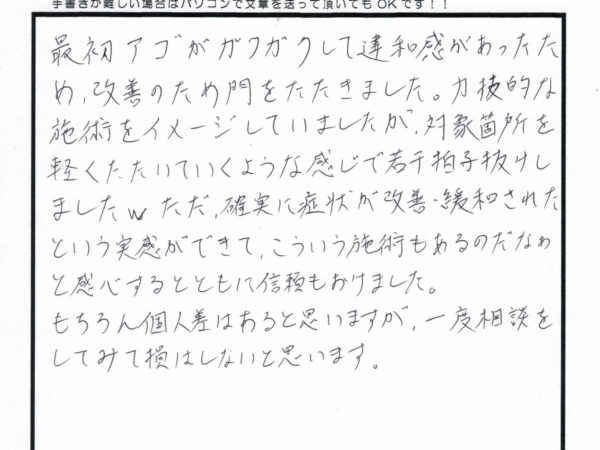 手書きが難しい場合はパソコンで文章を送って頂いてもOKです！！
最初アゴがガクガクして違和感があったた
め、改善のため門をたたきました。力技的な
施術をイメージしていましたが、対象箇所を
軽くたたいていくような感じで若干拍子抜けし
ましたw ただ、確実に症状が改善・緩和された
という実感ができて、こういう施術もあるのだなぁ
と感心するとともに信頼もおけました。
もちろん個人差はあると思いますが、一度相談を
してみて損はしないと思います。